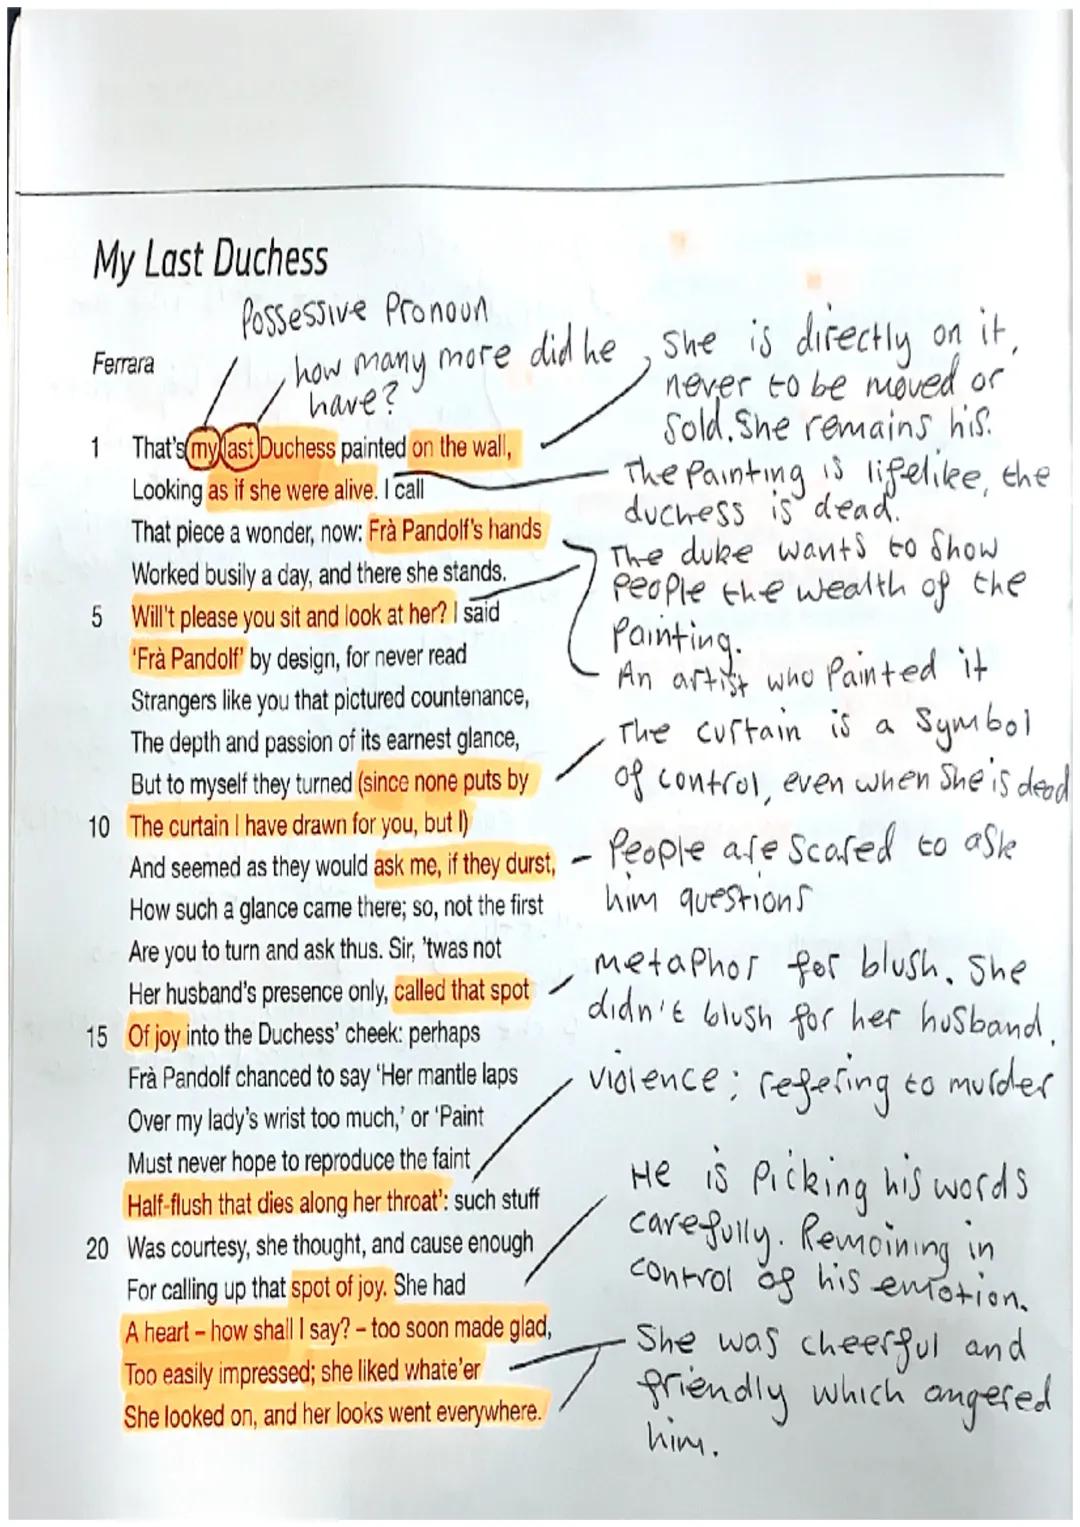 My Last Duchess
Possessive Pronoun
Ferrara
how many more did he
have?
She is directly on it,
never to be moved or
Sold. She remains his.
1 That's my last Duchess painted on the wall,
Looking as if she were alive. I call
The Painting is lifelike, the
duchess is dead.
That piece a wonder, now: Frà Pandolf's hands
Worked busily a day, and there she stands.
The duke wants to show
People the wealth of the
Painting.
5 Will't please you sit and look at her? I said
'Frà Pandolf' by design, for never read
An artist who Painted it
Strangers like you that pictured countenance,
The depth and passion of its earnest glance,
The curtain is a Symbol
of control, even when She is dead
But to myself they turned (since none puts by
10 The curtain I have drawn for you, but I)
And seemed as they would ask me, if they durst,
- People are Scared to ask
him questions
How such a glance came there; so, not the first
Are you to turn and ask thus. Sir, 'twas not
Her husband's presence only, called that spot
metaphor for blush. She
didn't blush for her husband.
15 Of joy into the Duchess' cheek: perhaps
Frà Pandolf chanced to say 'Her mantle laps
violence; refering to murder
Over my lady's wrist too much,' or 'Paint
Must never hope to reproduce the faint
Half-flush that dies along her throat': such stuff
He is Picking his words
carefully. Remaining in
control of his emotion.
20 Was courtesy, she thought, and cause enough
For calling up that spot of joy. She had
A heart – how shall I say? – too soon made glad,
Too easily impressed; she liked whate'er
She looked on, and her looks went everywhere.
She was cheerful and
friendly which angered
him.